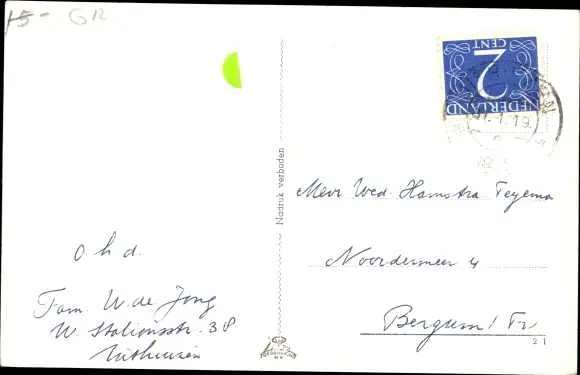 15- GR
NEDERLAND
2
CENT
Nadruk verboden
Mevr Wed. Hamstra-Teyema
Noordermeer 4
Bergum / Fr
21
o. h. d.
Fam. W. de Jong
W. Stationsstr. 38
Uithuizen